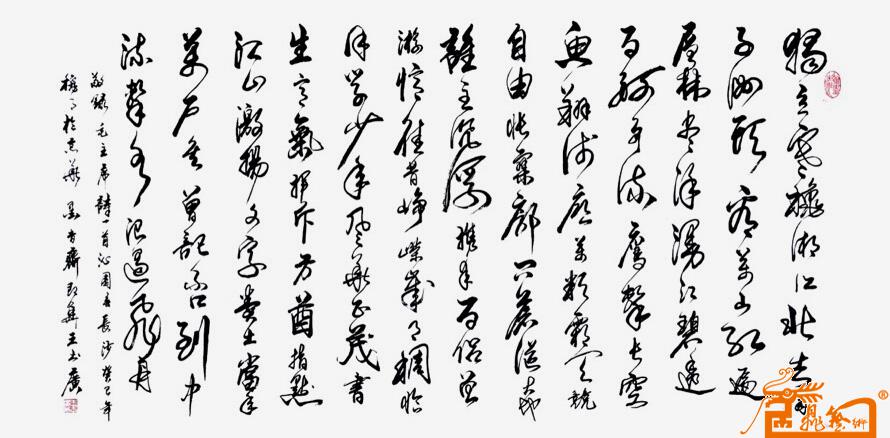 獨立寒秋湘江北去橘
子洲頭看萬山紅遍
層林盡染漫江碧透
百舸爭流鷹擊長空
魚翔淺底萬類霜天競
自由悵寥廓問蒼茫大地
誰主沉浮攜來百侶曾
游憶往昔崢嶸歲月稠恰
同學少年風華正茂書
生意氣揮斥方遒指點
江山激揚文字糞土當年
萬戶侯曾記否到中
流擊水浪遏飛舟
敬錄毛主席詩一首沁園春長沙癸巳年
秋月於京華墨香齋